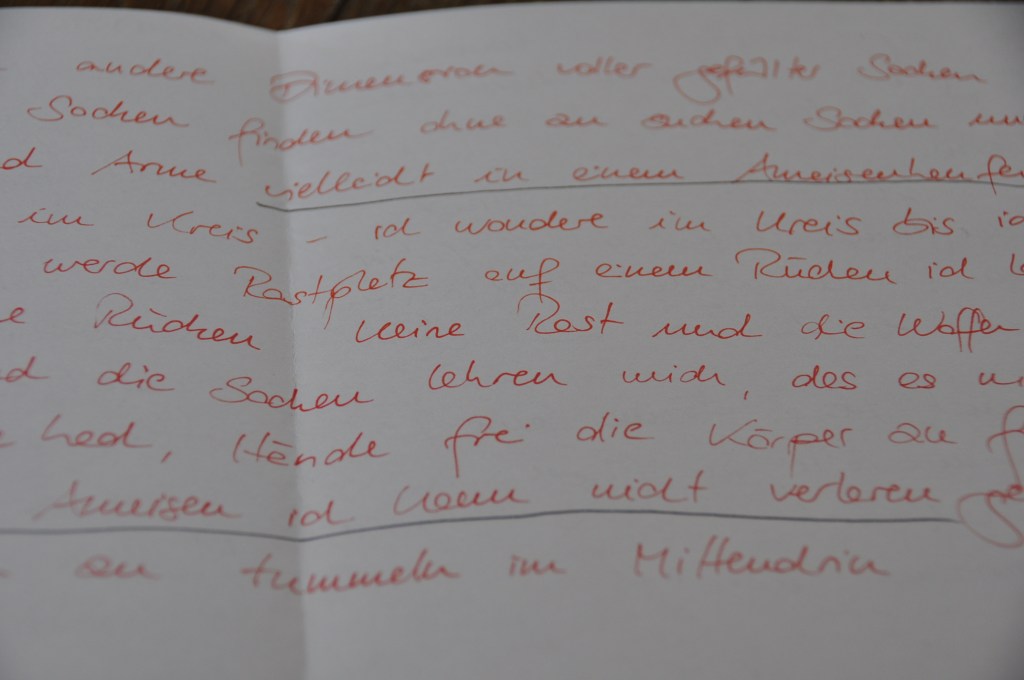 andere Dimension voller gefüllter Sachen
Sachen finden ohne zu suchen Sachen
Arme vielleicht in einem Ameisenhaufen
im Kreis – ich wandere im Kreis bis
werde Rastplatz auf einem Rücken ich
Rücken keine Rast und die Waffen
die Sachen lehren mich, das es
Hände frei die Körper zu
Ameisen ich kann nicht verloren
zu tummeln im Mittendrin